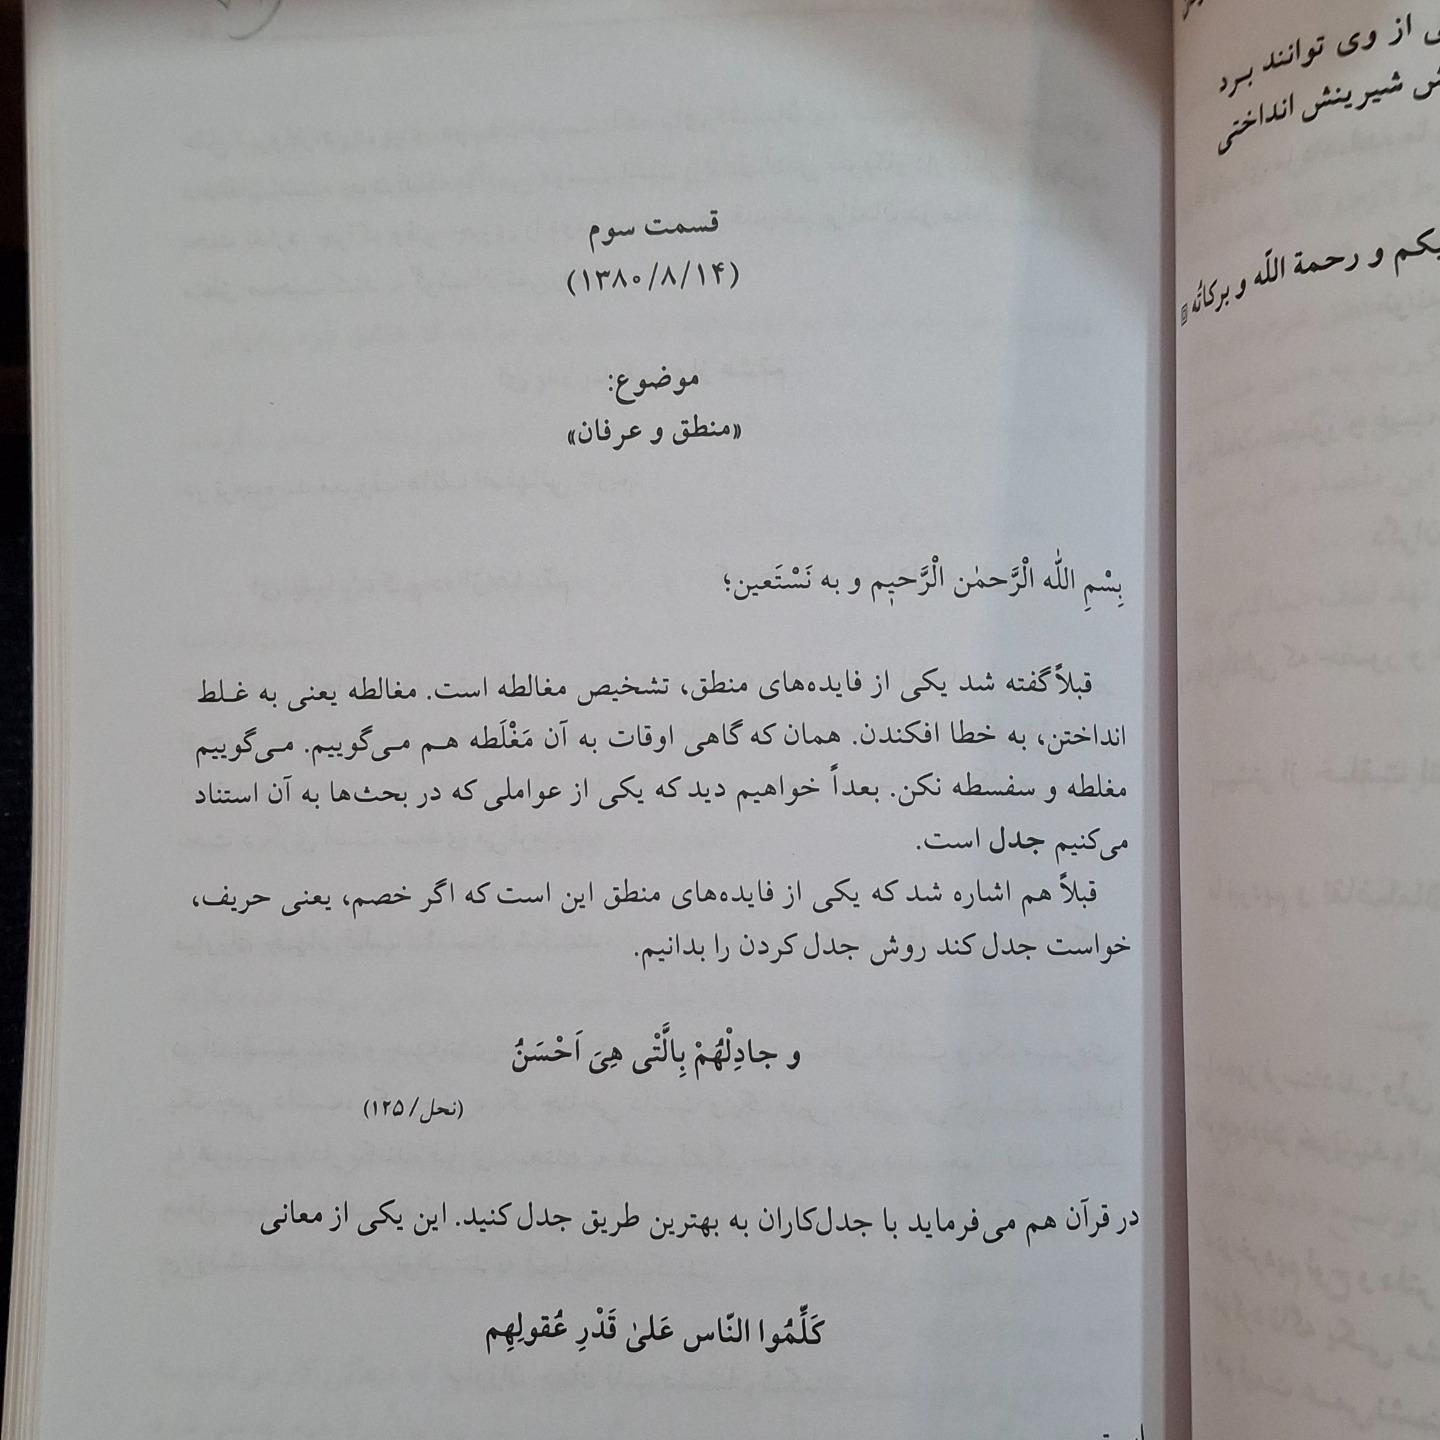 قسمت سوم
(۱۳۸۰/۸/۱۴)
موضوع:
«منطق و عرفان»
بِسْمِ اللّٰه الْرَّحمٰن الْرَّحیٖم و به نَسْتَعین؛
قبلاً گفته شد یکی از فایده‌های منطق، تشخیص مغالطه است. مغالطه یعنی به غـلط
انداختن، به خطا افکندن. همان که گاهی اوقات به آن مَغْلَطه هـم مـی‌گوییم. مـی‌گوییم
مغلطه و سفسطه نکن. بعداً خواهیم دید که یکی از عواملی که در بحث‌ها به آن استناد
می‌کنیم جدل است.
قبلاً هم اشاره شد که یکی از فایده‌های منطق این است که اگر خصم، یعنی حریف،
خواست جدل کند روش جدل کردن را بدانیم.
و جادِلْهُمْ بِالَّتْی هِیَ اَحْسَنُ
(نحل/۱۲۵)
در قرآن هم می‌فرماید با جدل‌کاران به بهترین طریق جدل کنید. این یکی از معانی
کَلِّمُوا النّاس عَلیٰ قَدْرِ عُقولِهِم
از وی توانند بـرد
شیرینش انداختی
و رحمة اللّه و برکاتُه